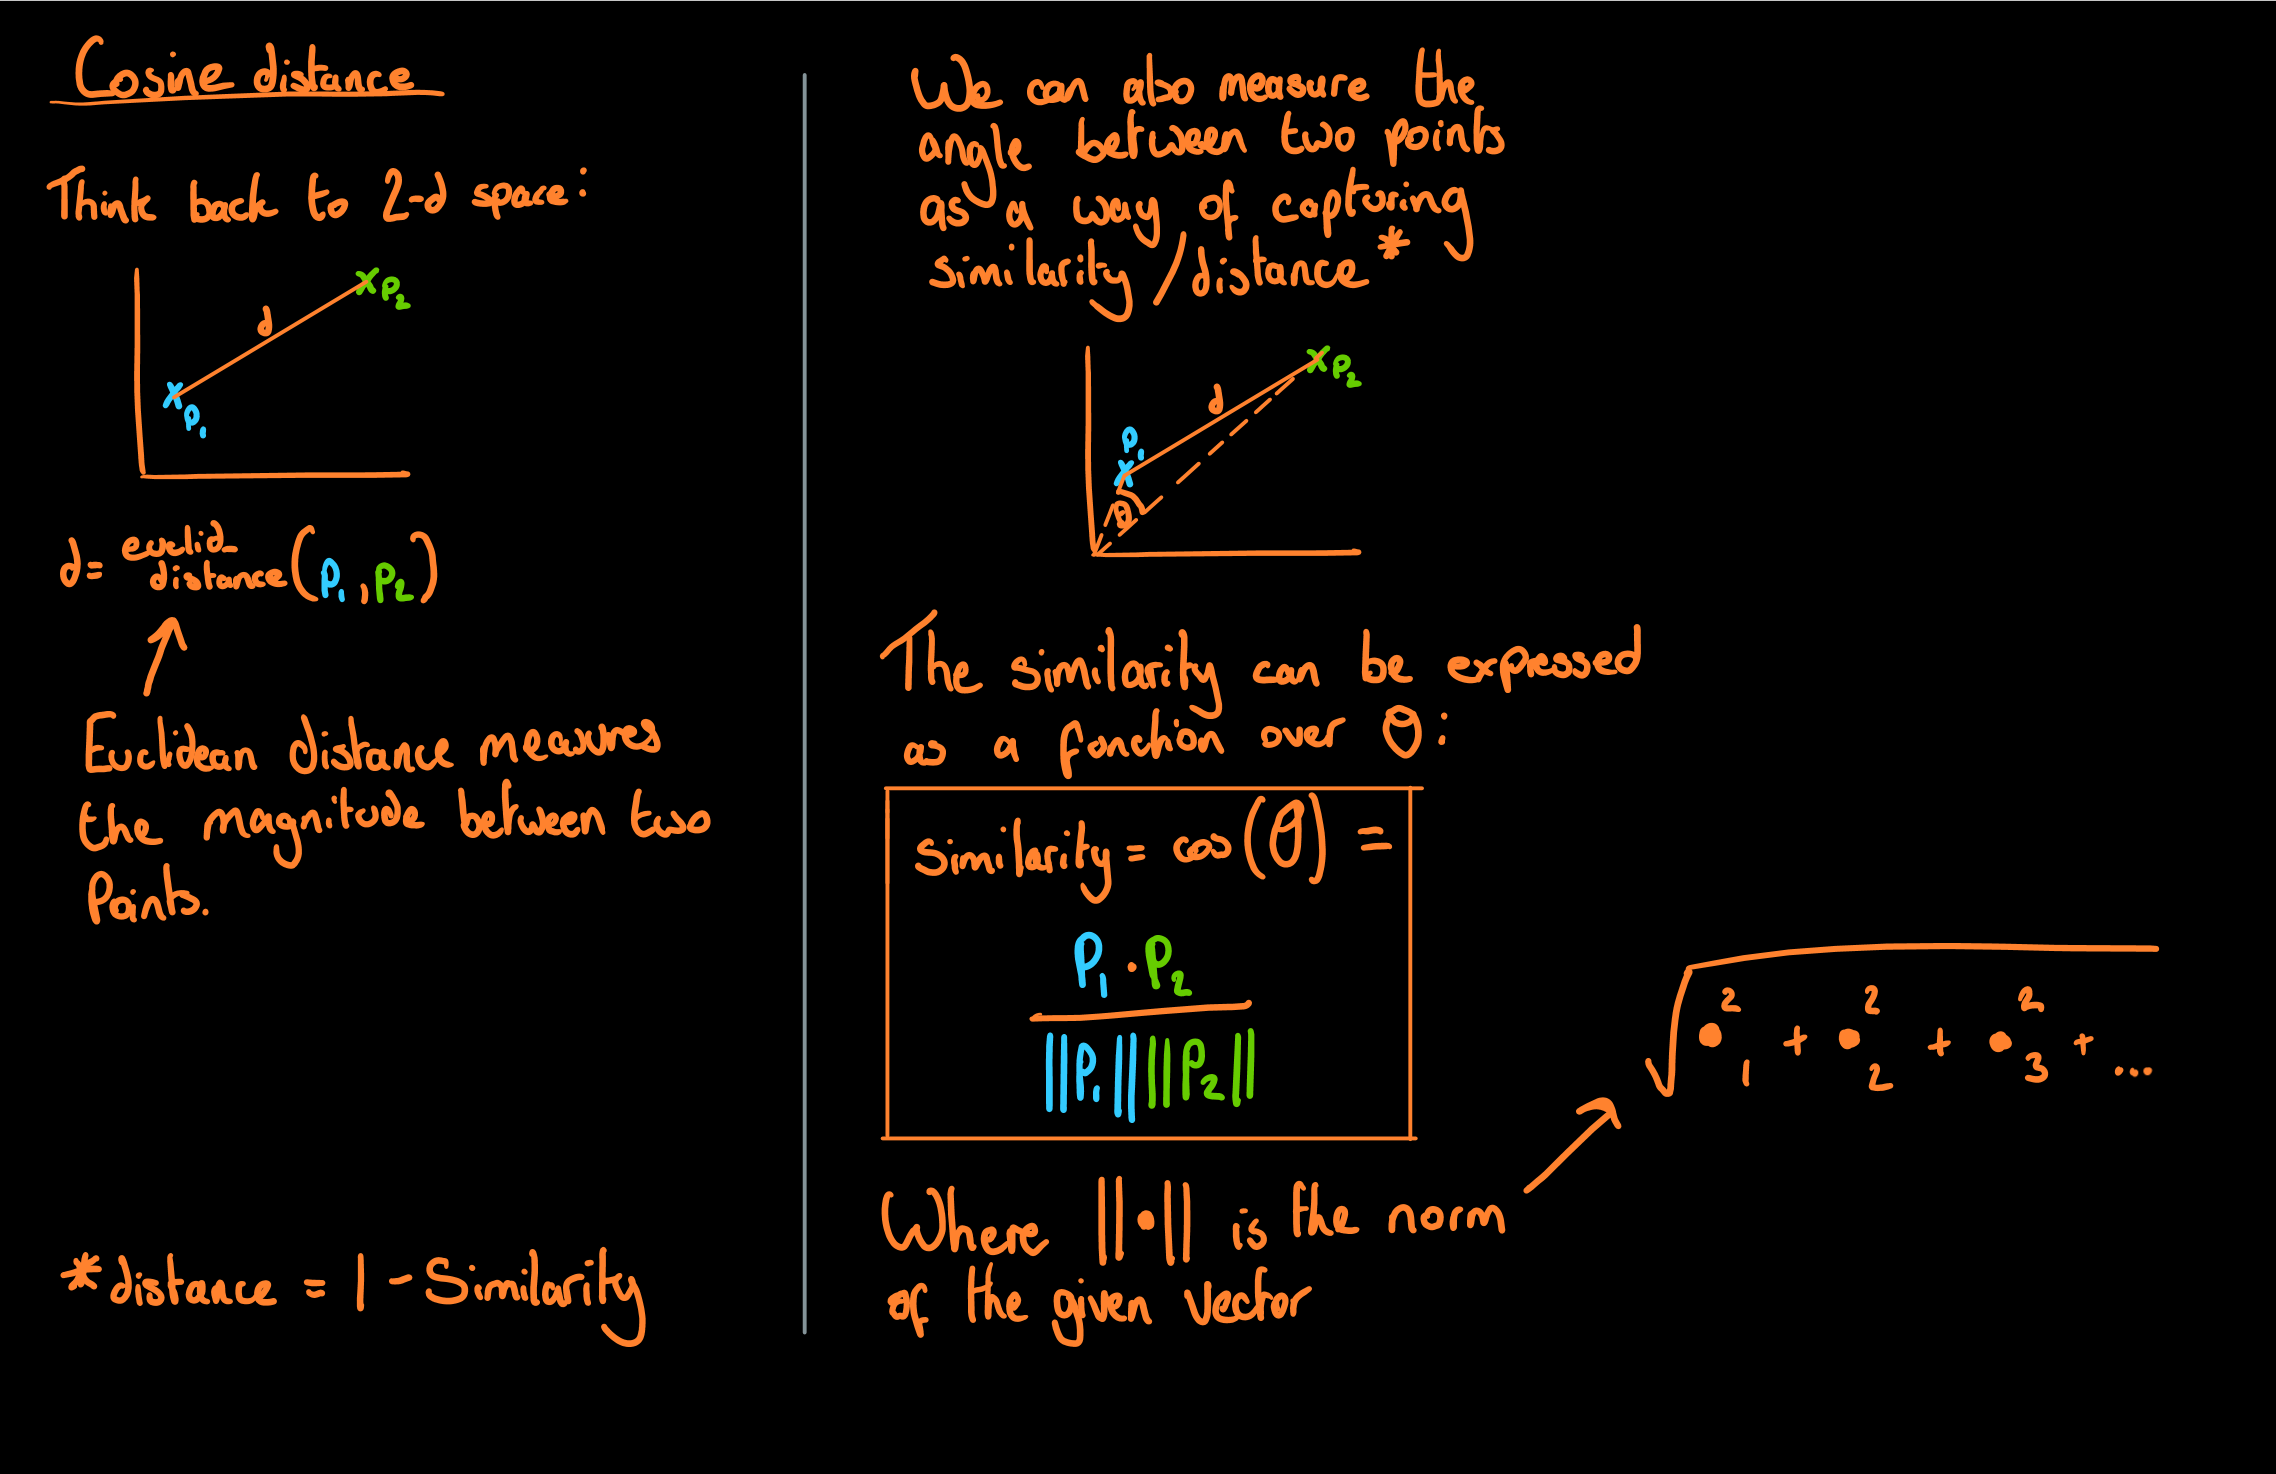 Cosine distance
Think back to 2-d space:
d
p₂
p₁
d = euclid_
distance(p₁, p₂)
Euclidean distance measures
the magnitude between two
Points.
*distance = 1 - Similarity
We can also measure the
angle between two points
as a way of capturing
similarity/distance*
d
p₂
p₁
θ
The similarity can be expressed
as a function over θ:
similarity = cos(θ) =
p₁ · p₂
||p₁|| ||p₂||
Where ||•|| is the norm
of the given vector
√ •₁² + •₂² + •₃² + ...